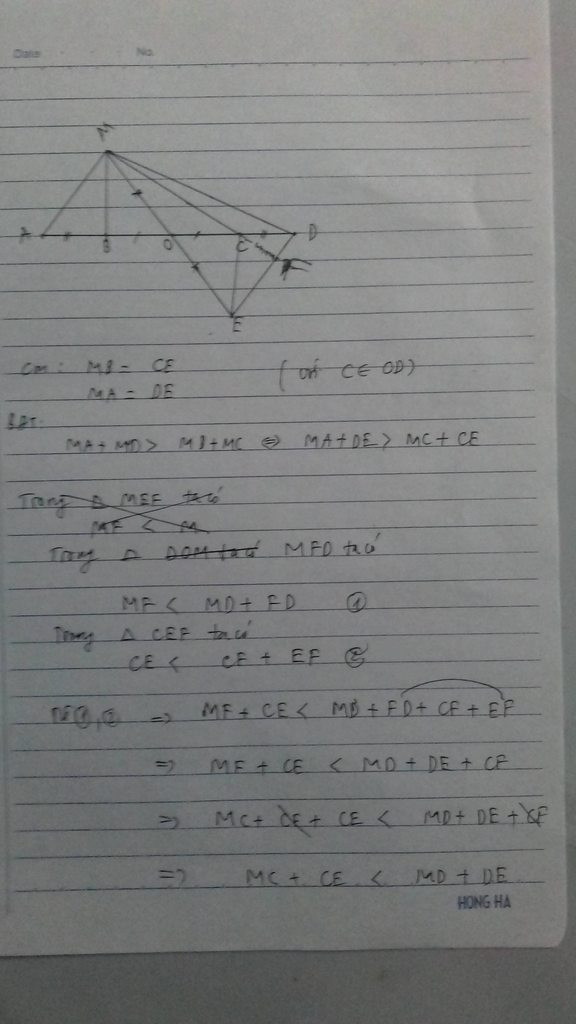 Date No.
M
A B O C D
F
E
Cm: MB = CE
(với C ∈ OD)
MA = DE
BĐT:
MA + MD > MB + MC ⇔ MA + DE > MC + CE
Trong Δ MEF ta có
MF < M
Trong Δ DOM ta có MFD ta có
MF < MD + FD ①
Trong Δ CEF ta có
CE < CF + EF ②
Từ ①, ② ⇒ MF + CE < MD + FD + CF + EF
⇒ MF + CE < MD + DE + CF
⇒ MC + CF + CE < MD + DE + CF
⇒ MC + CE < MD + DE
HONG HA